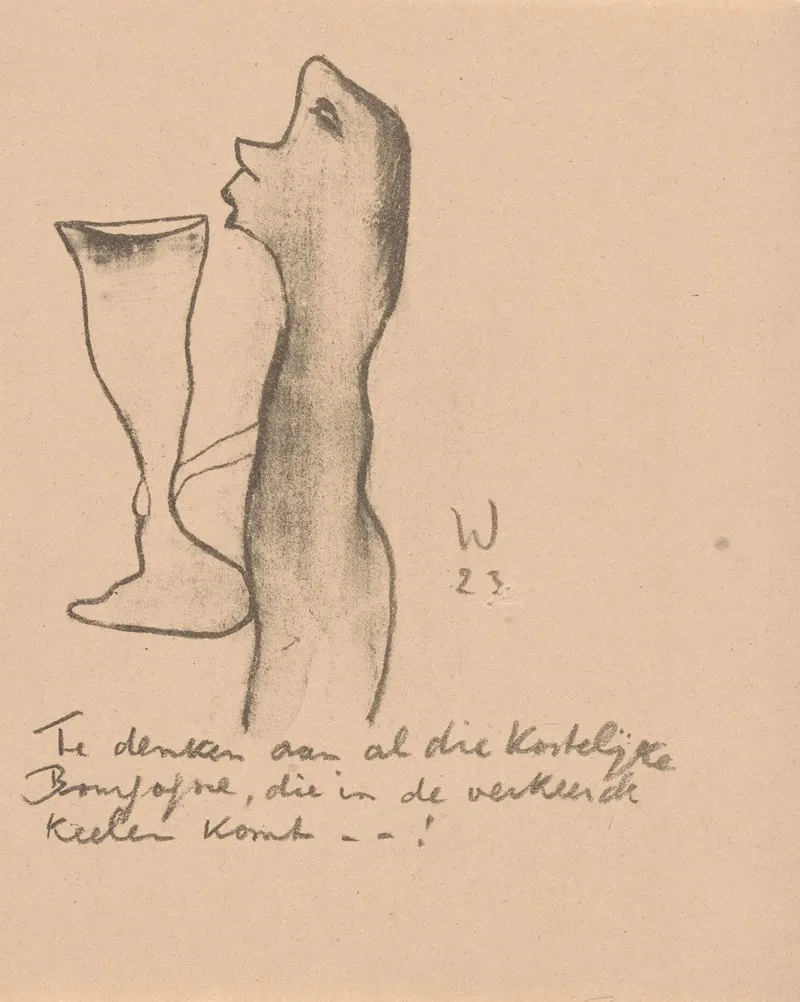 W
23
Te denken aan al die kostelijke
Bourgogne, die in de verkeerde
keelen komt - - !